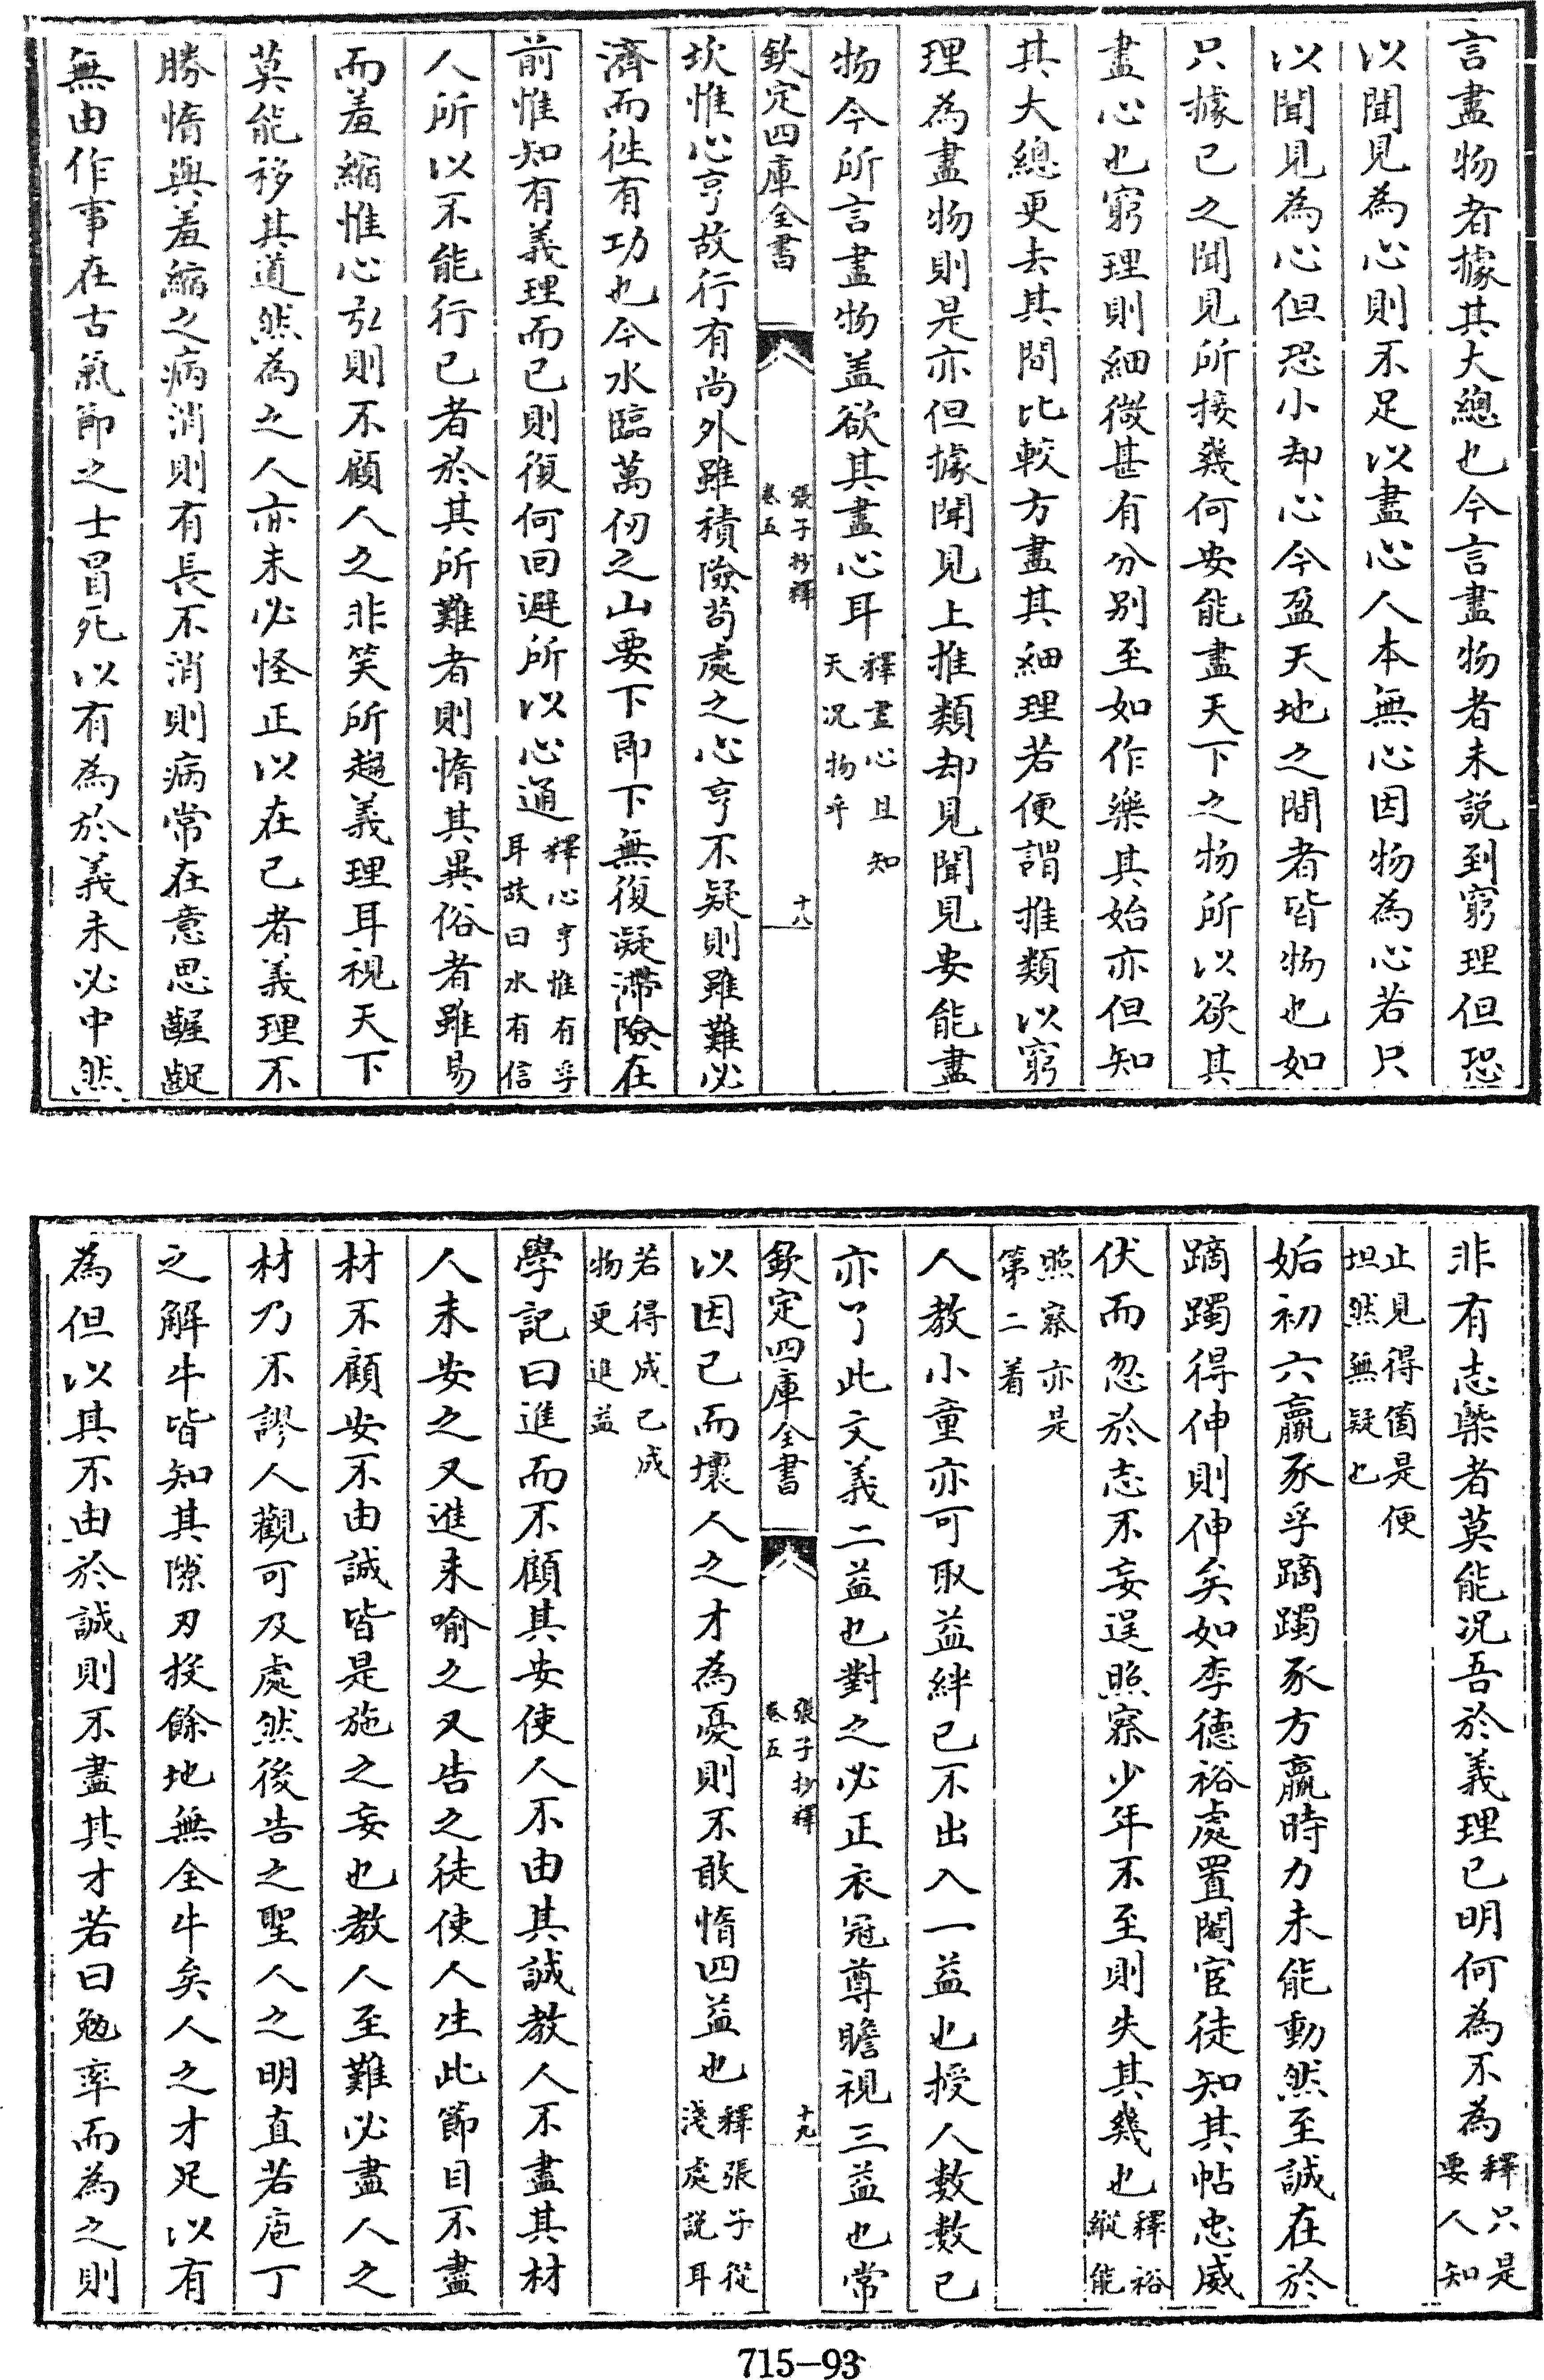 言盡物者據其大總也今言盡物者未説到窮理但恐
以聞見為心則不足以盡心人本無心因物為心若只
以聞見為心但恐小却心今盈天地之間者皆物也如
只據已之聞見所接幾何安能盡天下之物所以欲其
盡心也窮理則細微甚有分别至如作樂其始亦但知
其大總更去其間比較方盡其細理若便謂推類以窮
理為盡物則是亦但據聞見上推類却見聞見安能盡
物今所言盡物盖欲其盡心耳釋盡心且知
天况物乎
欽定四庫全書
張子抄釋
卷五
十八
坎惟心亨故行有尚外雖積險苟處之心亨不疑則雖難必
濟而徃有功也今水臨萬仞之山要下即下無復凝滯險在
前惟知有義理而已則復何回避所以心通釋心亨惟有孚
耳故曰水有信
人所以不能行已者於其所難者則惰其異俗者雖易
而羞縮惟心弘則不顧人之非笑所趨義理耳視天下
莫能移其道然為之人亦未必怪正以在己者義理不
勝惰與羞縮之病消則有長不消則病常在意思齷齪
無由作事在古氣節之士冒死以有為於義未必中然
非有志槩者莫能况吾於義理已明何為不為釋只是
要人知
止見得箇是便
坦然無疑也
姤初六羸豕孚蹢躅豕方羸時力未能動然至誠在於
蹢躅得伸則伸矣如李德裕處置閹宦徒知其帖忠威
伏而忽於志不妄逞照察少年不至則失其幾也釋裕
縱能
照察亦是
第二着
人教小童亦可取益絆已不出入一益也授人數數已
亦了此文義二益也對之必正衣冠尊瞻視三益也常
欽定四庫全書
張子抄釋
卷五
十九
以因已而壞人之才為憂則不敢惰四益也釋張子從
淺處説耳
若得成已成
物更進益
學記曰進而不顧其安使人不由其誠教人不盡其材
人未安之又進未喻之又告之徒使人生此節目不盡
材不顧安不由誠皆是施之妄也教人至難必盡人之
材乃不謬人觀可及處然後告之聖人之明直若庖丁
之解牛皆知其隙刃投餘地無全牛矣人之才足以有
為但以其不由於誠則不盡其才若曰勉率而為之則
715-93